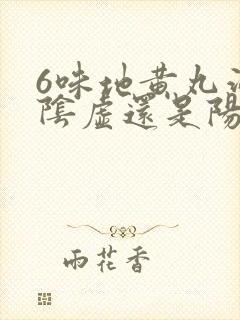 6味地黄丸治
陰虛還是陽
雨花香